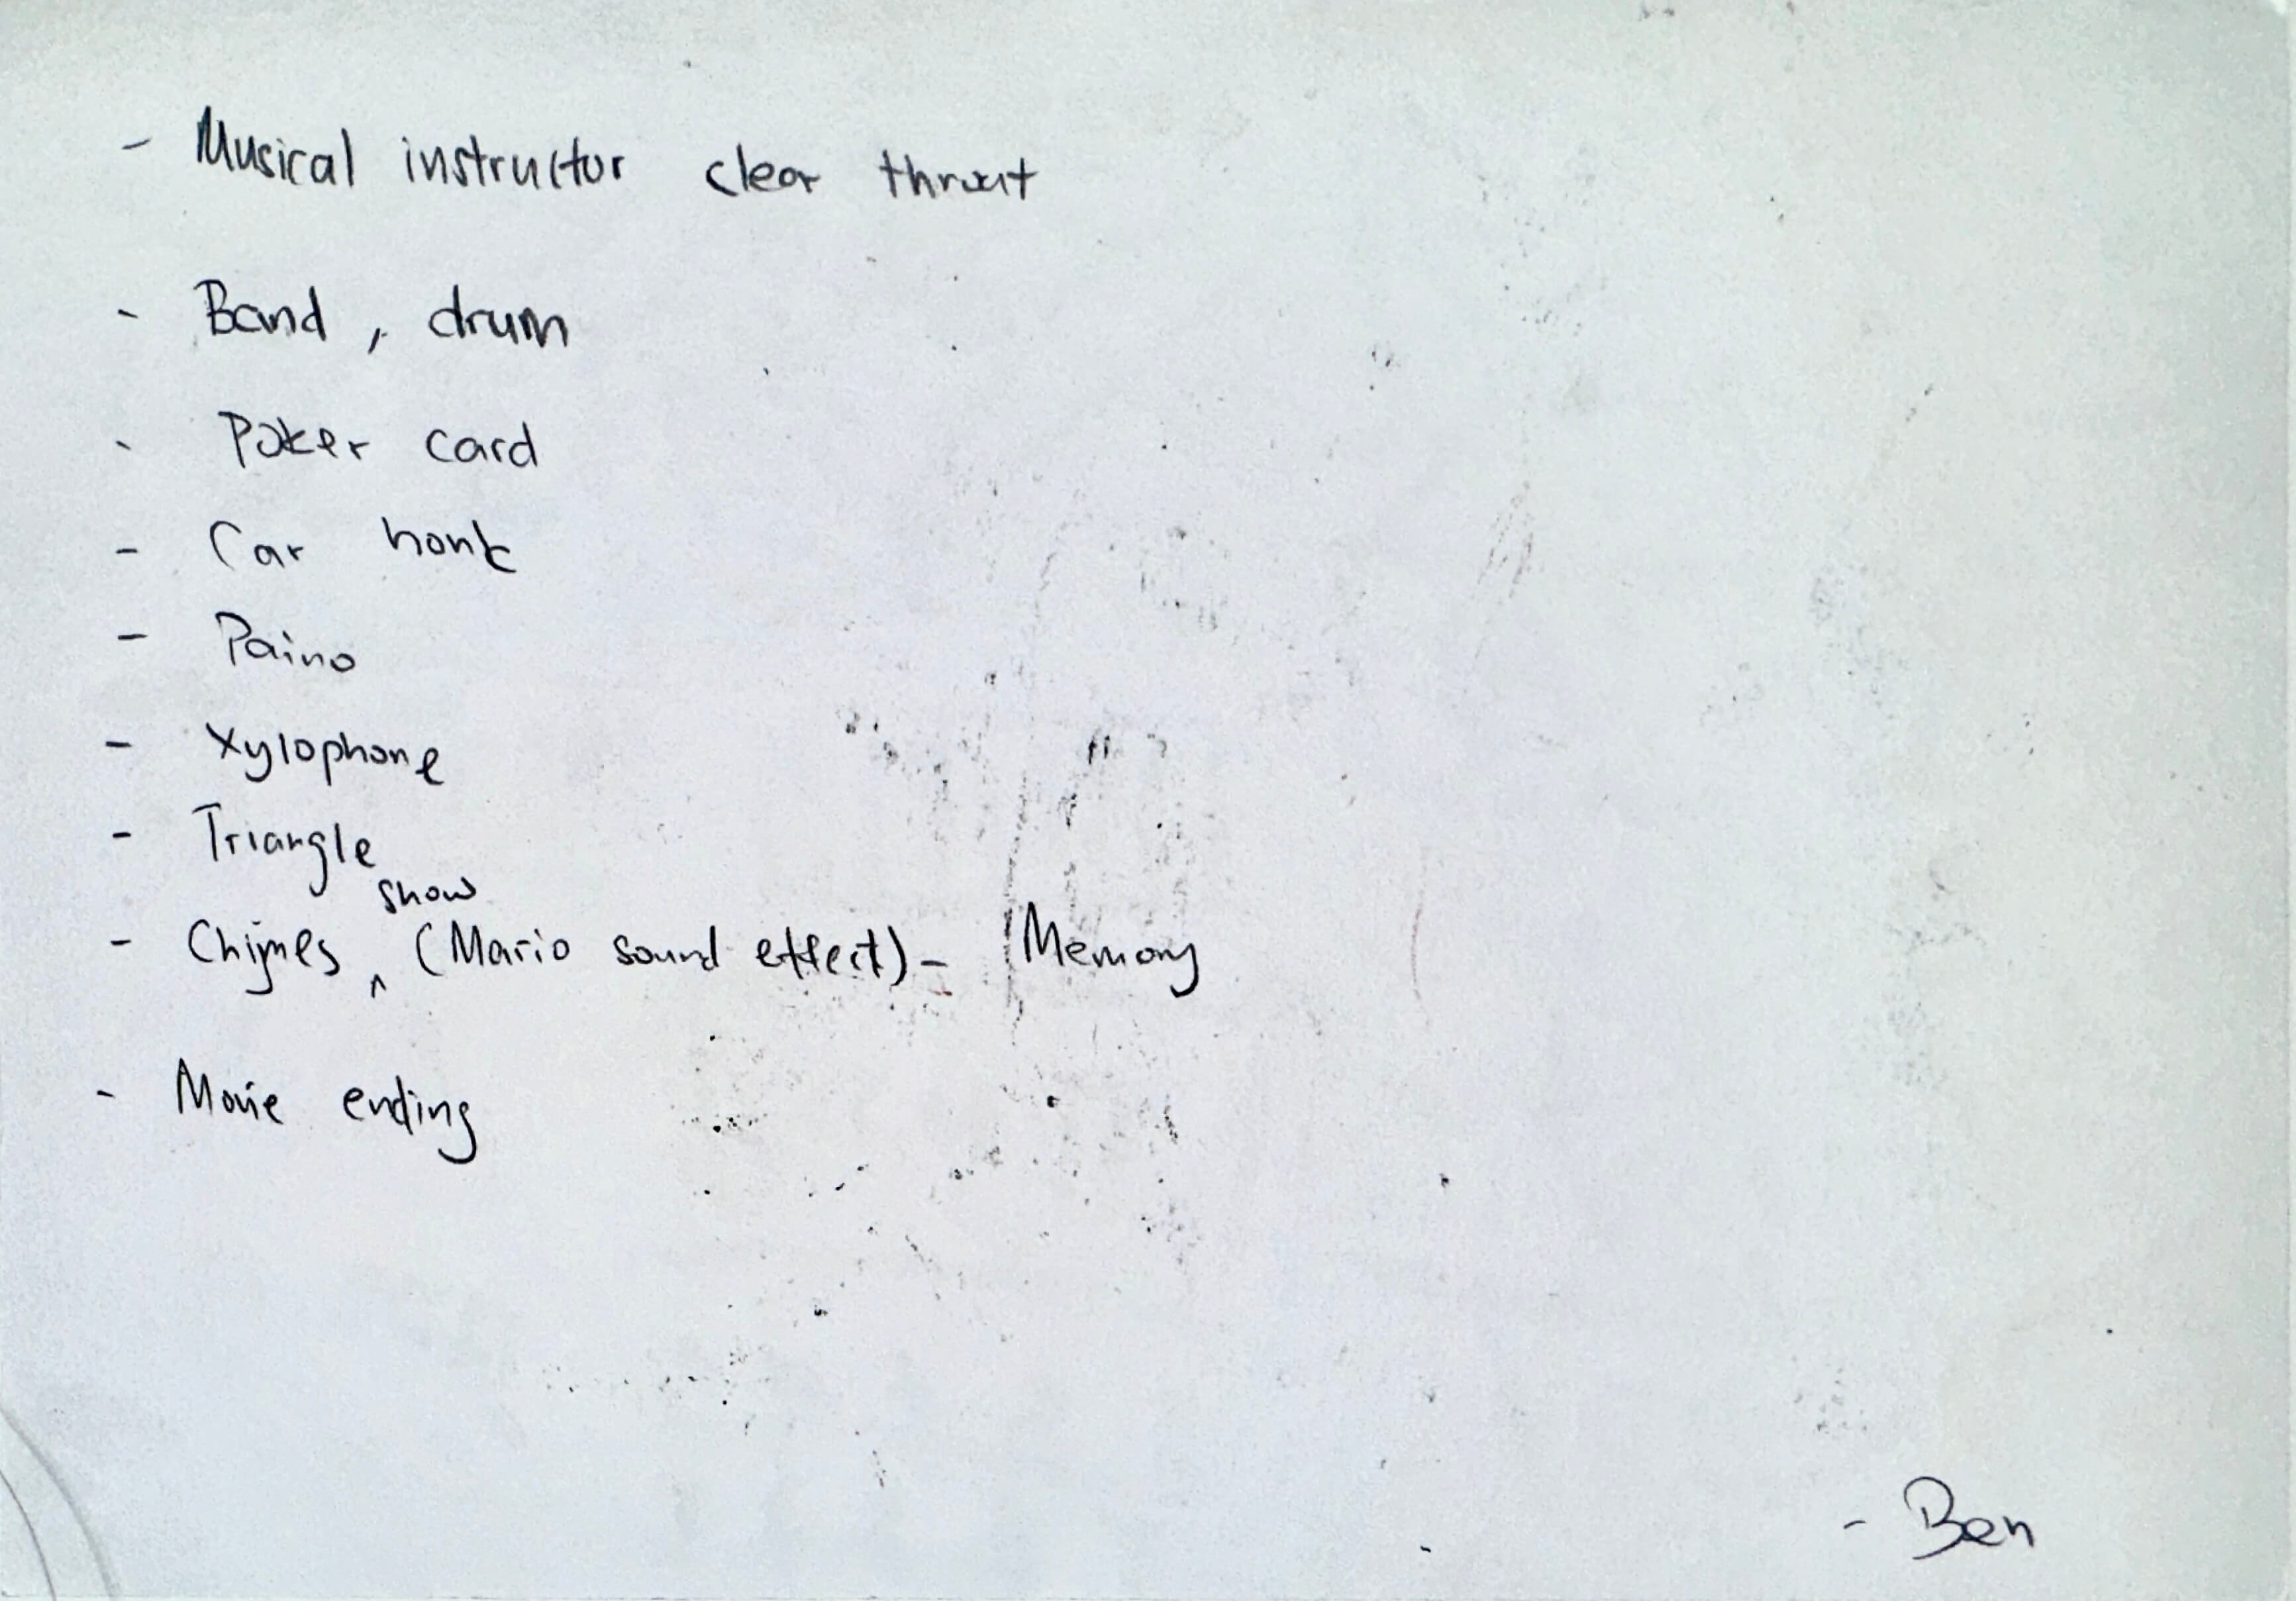 - Musical instructor clear throat
- Band, drum
- Poker card
- Car honk
- Paino
- Xylophone
- Triangle
- Chimes show (Mario sound effect) - Memory
- Movie ending
- Ben